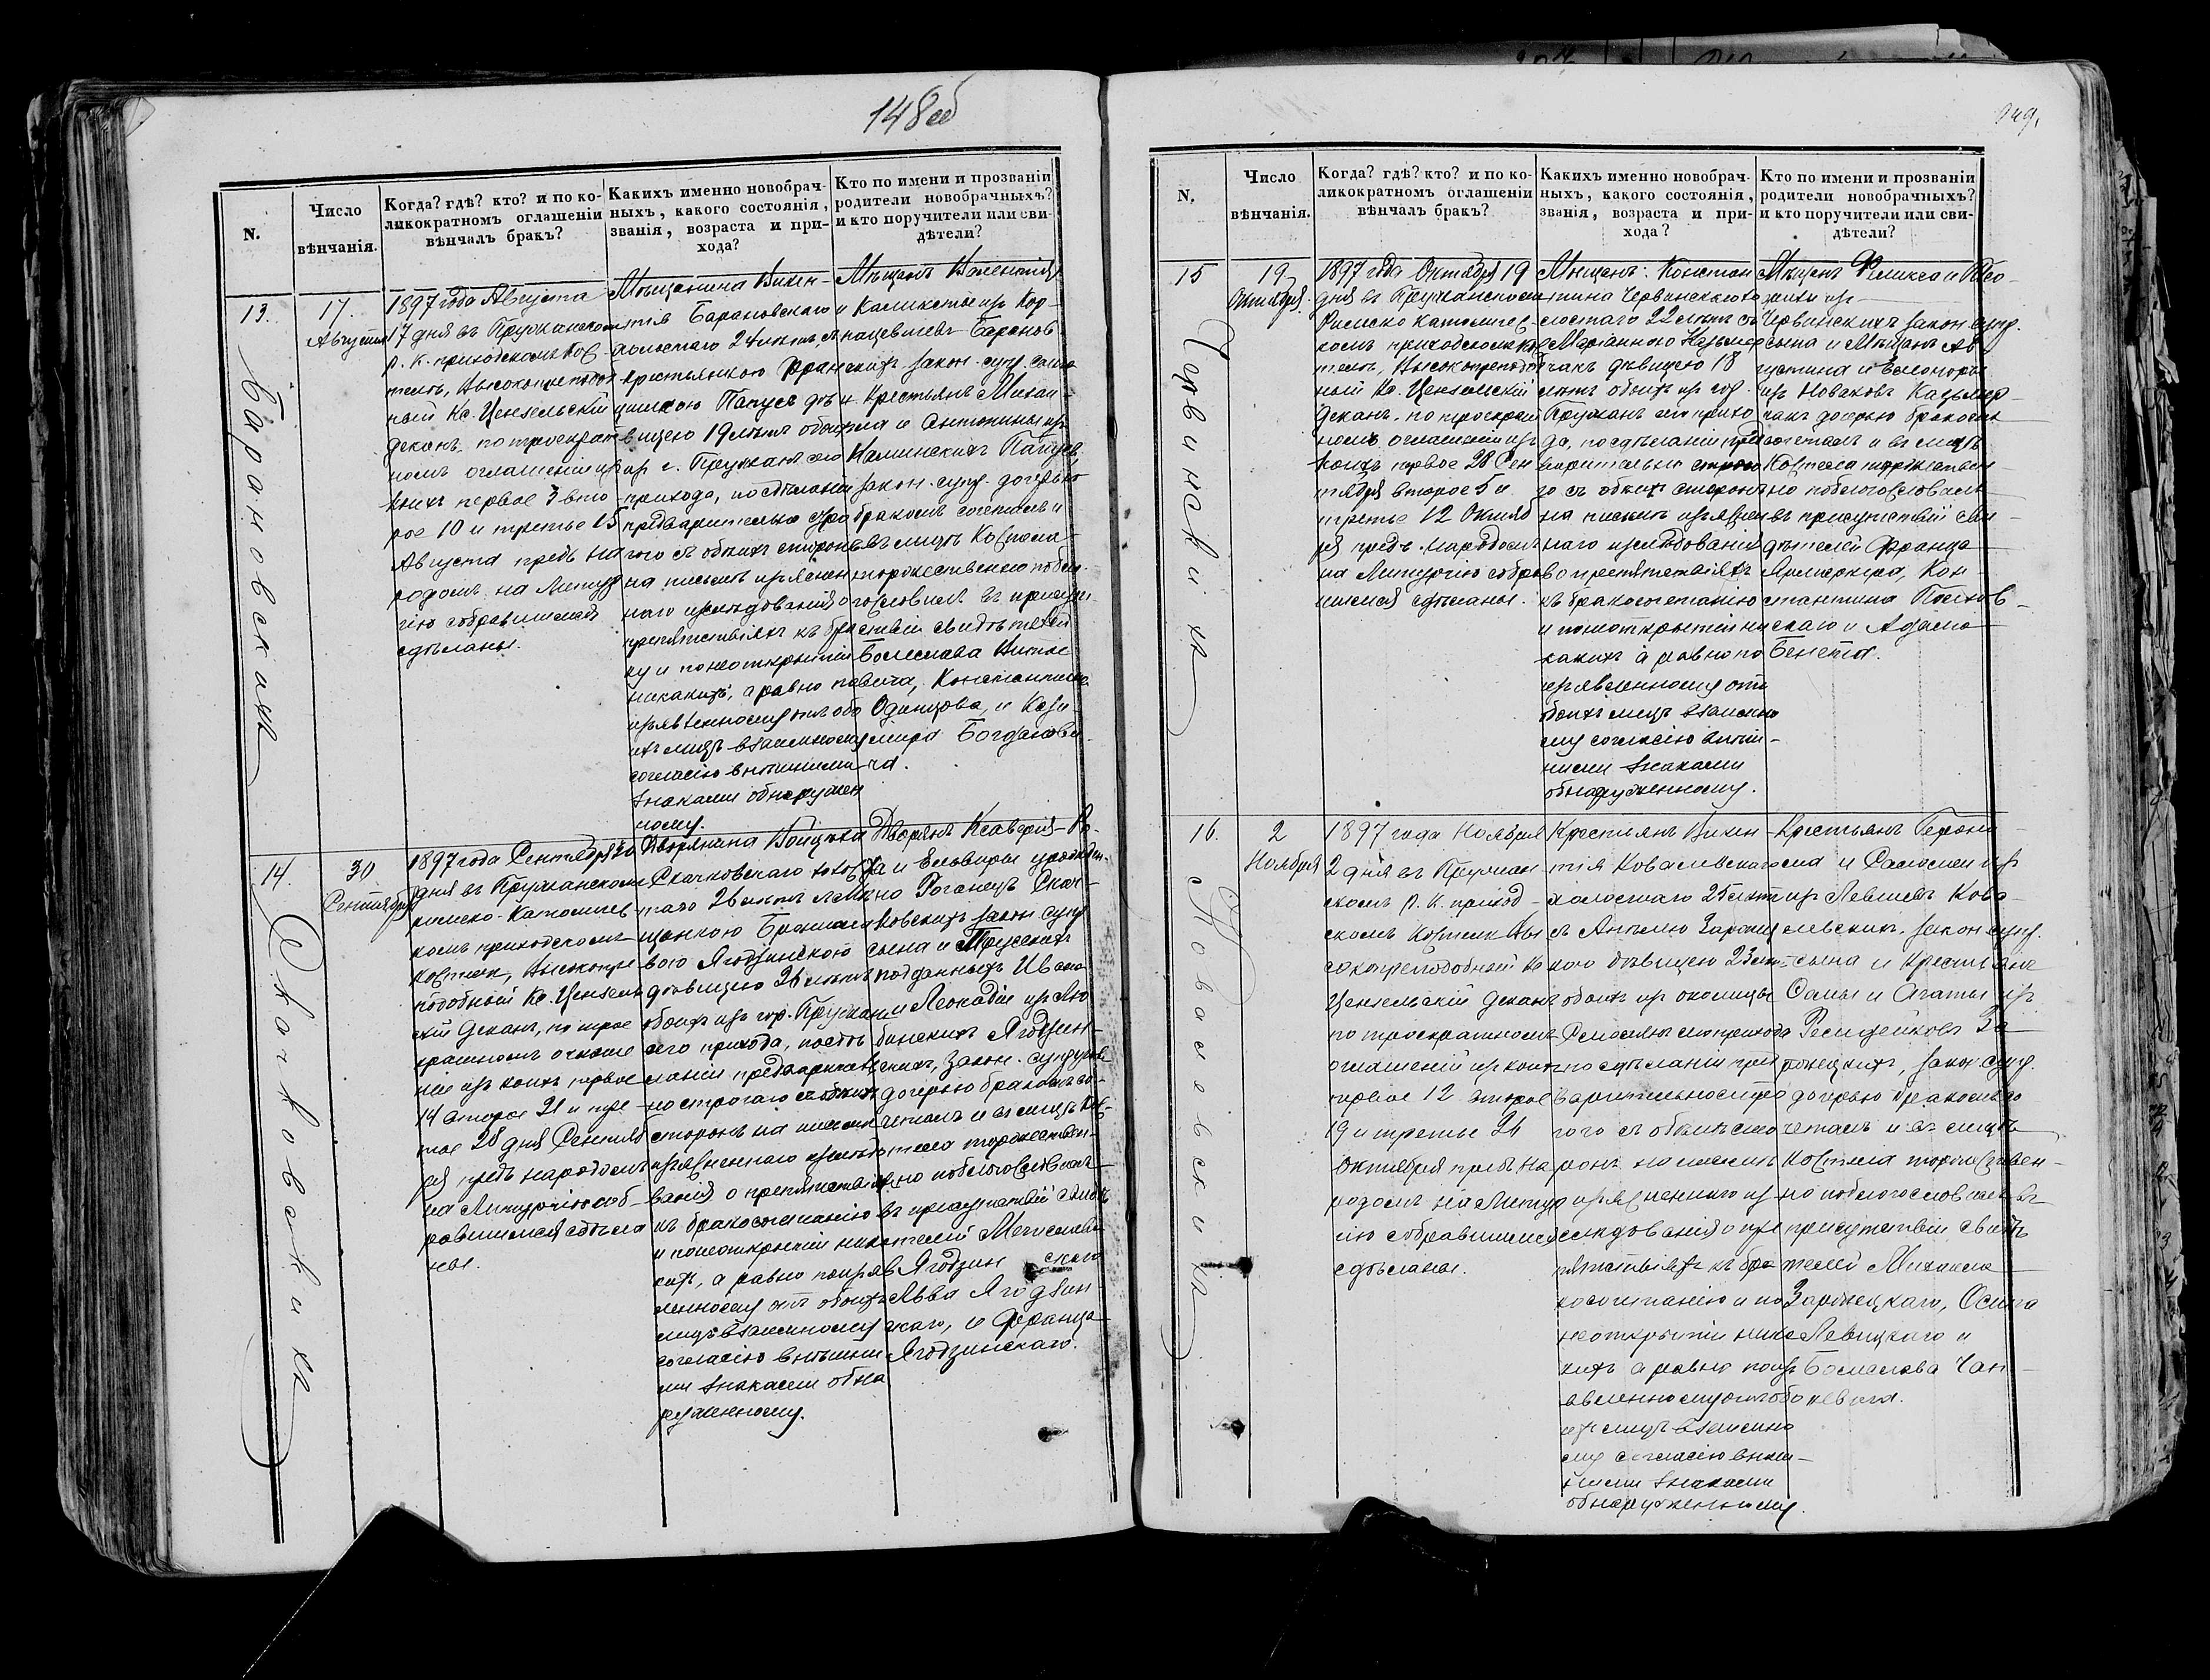 148 об
N.
Число
вѣнчанія.
Когда? гдѣ? кто? и по ко-
ликократномъ оглашеніи
вѣнчалъ бракъ?
Какихъ именно новобрач-
ныхъ, какого состоянія,
званія, возраста и при-
хода?
Кто по имени и прозванію
родители новобрачныхъ?
и кто поручители или сви-
дѣтели?
13.
Барановская
17.
Августа
1897 года Августа
17 дня въ Пружанскомъ
Р. К. приходскомъ Кос
телѣ, Высокопреподоб
ный Кс. Цензельскій
деканъ, по троекрат
номъ оглашеніи изъ
коихъ первое 3 вто
рое 10 и третье 15
Августа предъ на
родомъ на Литур
гію собравшимся
сдѣланы.
Мѣщанина Викен-
тія Барановскаго
холостаго 24 лѣтъ, съ
крестьянкою Фран
цишкою Папусь дѣ
вицею 19 лѣтъ обоихъ
изъ г. Пружанъ сего
прихода, по сдѣланіи
предварительно стро
гого съ обоихъ сторонъ
на письмѣ изъяснен
наго изслѣдованія о
препятствіяхъ къ бра
ку и по неоткрытіи
никакихъ, а равно по
изъявленному отъ обо
ихъ лицъ взаимному
согласію внѣшними
знаками обнаружен
ному.
Мѣщанъ Валентія
и Каликсты изъ Кор-
нацевичевъ Баранов
скихъ закон. супр. сына
и Крестьянъ Михаи-
ла и Антонины изъ
Каминскихъ Папусь
закон. супр. дочерью
бракомъ сочеталъ и
въ лицѣ Костела
торжественно побла-
гословилъ въ присут-
ствіи свидѣтелей
Болеслава Витке
вича, Константина
Одинцова, и Кази
мира Богданови
ча.
14.
Скачковскій
30
Сентября
1897 года Сентября 30
дня въ Пружанскомъ
римско-Католичес
комъ приходскомъ
костелѣ, Высокопре
подобный Кс. Цензель
скій Деканъ, по трое
кратномъ оглаше
ніи изъ коихъ первое
14 второе 21 и тре
тье 28 дня Сентяб
ря предъ народомъ
на Литургію соб-
равшимся сдѣла
ны.
Дворянина Войцѣха
Скачковскаго холос
таго 26 лѣтъ съ Мѣ
щанкою Брониса
вою Ягодзинскою
дѣвицею 26 лѣтъ
обоихъ изъ гор. Пружанъ
сего прихода, по сдѣ
ланіи предварительно
строгаго съ обоихъ
сторонъ на письмѣ
изъясненнаго изслѣдо
ванія о препятствіяхъ
къ бракосочетанію
и по неоткрытіи ника
кихъ, а равно по изъяв
ленному отъ обоихъ
лицъ взаимному
согласію внѣшни
ми знаками обна
руженному.
Дворянъ Ксаверія
и Ельвиры урожден-
но Роганецъ Скач-
ковскихъ закон. супр
сына и Прусскихъ
подданныхъ Ивана
и Леокадіи изъ Лю
бинскихъ Ягодзин-
скихъ, закон. супруговъ
дочерью бракомъ со-
четалъ и въ лицѣ Кос-
тела торжествен-
но поблагословилъ
въ присутствіи свидѣ
телей Мечислава
Ягодзинскаго
Льва Ягодзин
скаго, и Франца
Ягодзинскаго.
149.
N.
Число
вѣнчанія.
Когда? гдѣ? кто? и по ко-
ликократномъ оглашеніи
вѣнчалъ бракъ?
Какихъ именно новобрач-
ныхъ, какого состоянія,
званія, возраста и при-
хода?
Кто по имени и прозванію
родители новобрачныхъ?
и кто поручители или сви-
дѣтели?
15
Червинскій
19
Октября.
1897 года Октября 19
дня въ Пружанскомъ
Римско Католичес
комъ приходскомъ Кос
телѣ, Высокопреподоб
ный Кс. Цензельскій
Деканъ, по троекрат
номъ оглашеніи изъ
коихъ первое 28 Сен
тября второе 5 и
третье 12 Октяб
ря предъ народомъ
на Литургію собрав
шимся сдѣланы.
Мѣщанъ: Констан
тина Червинскаго хо
лостаго 22 лѣтъ съ
Маріанною Казьмер
чакъ дѣвицею 18
лѣтъ обоихъ изъ гор.
Пружанъ сего прихо
да, по сдѣланіи пред
варительно строго
го съ обоихъ сторонъ
на письмѣ изъяснен
наго изслѣдованія
о препятствіяхъ
къ бракосочетанію
и по неоткрытіи ни
какихъ а равно по
изъявленному отъ
обоихъ лицъ взаимно
му согласію внѣш-
ними знаками
обнаруженному.
Мѣщанъ Феликса и
Червинскихъ закон. супр.
сына и Мѣщанъ Ав
густина и Елеоноры
изъ Новаковъ Казьмер
чакъ дочерью бракомъ
сочеталъ и въ лицѣ
Костела торжествен
но поблагословилъ
въ присутствіи сви
дѣтелей Франца
Ярмаркира, Кон
стантина Постов-
скаго и Адама
Бенета.
16.
Ковалевскій
2
Ноября
1897 года Ноября
2 дня въ Пружан
скомъ Р. К. приход
скомъ Костелѣ Вы
сокопреподобный Кс
Цензельскій Деканъ
по троекратномъ
оглашеніи изъ коихъ
первое 12 второе
19 и третье 26
Октября предъ на
родомъ на Литур
гію собравшимся
сдѣланы.
Крестьянъ Викен
тія Ковалевскаго
холостаго 25 лѣтъ
съ Анѣлею Зарѣц
кою дѣвицею 23 лѣтъ
обоихъ изъ околицы
сего прихода
по сдѣланіи пред
варительно стро
гого съ обоихъ сто
ронъ на письмѣ
изъясненнаго из
слѣдованія о пре
пятствіяхъ къ бра
косочетанію и по
неоткрытіи ника
кихъ а равно по изъ
явленному отъ обо
ихъ лицъ взаимно
му согласію внѣш
ними знаками
обнаруженному.
Крестьянъ Герони
ма и Саломеи изъ
Левшевъ Кова
левскихъ, закон. супр.
сына и Крестьяна
Фомы и Агаты изъ
За
рѣцкихъ, закон супр.
дочерью бракомъ со
четалъ и въ лицѣ
Костела торжествен-
но поблагословилъ въ
присутствіи свидѣ
телей Михаила
Зарѣцкаго, Осипа
Левицкаго и
Болеслава Чап
невича.